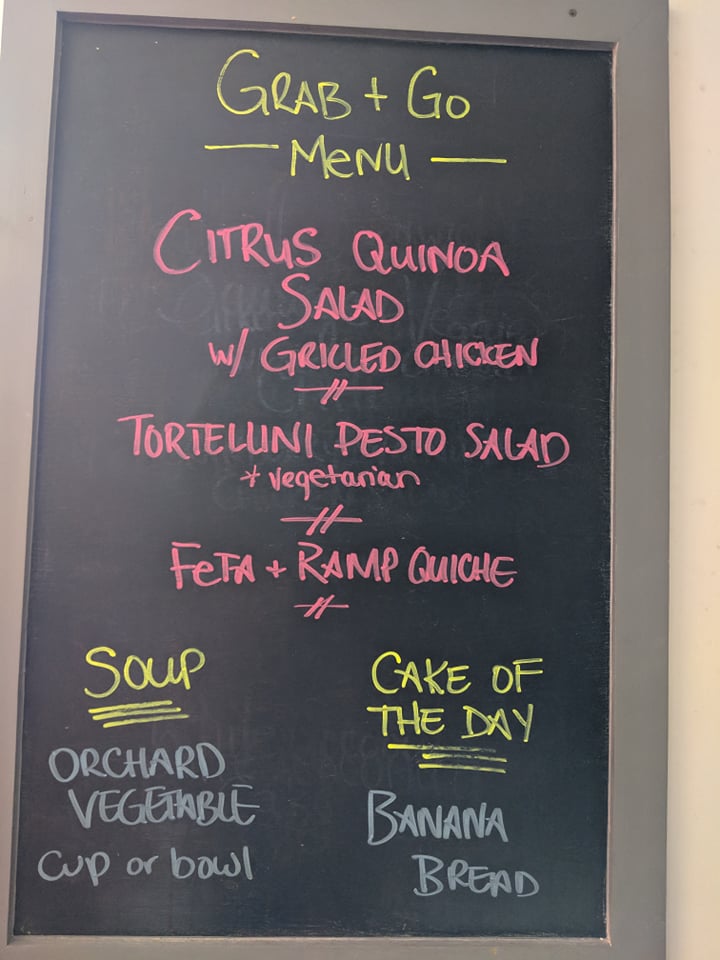 GRAB + GO
MENU
CITRUS QUINOA
SALAD
W/ GRILLED CHICKEN
TORTELLINI PESTO SALAD
* vegetarian
FETA + RAMP QUICHE
SOUP
ORCHARD
VEGETABLE
cup or bowl
CAKE OF
THE DAY
BANANA
BREAD